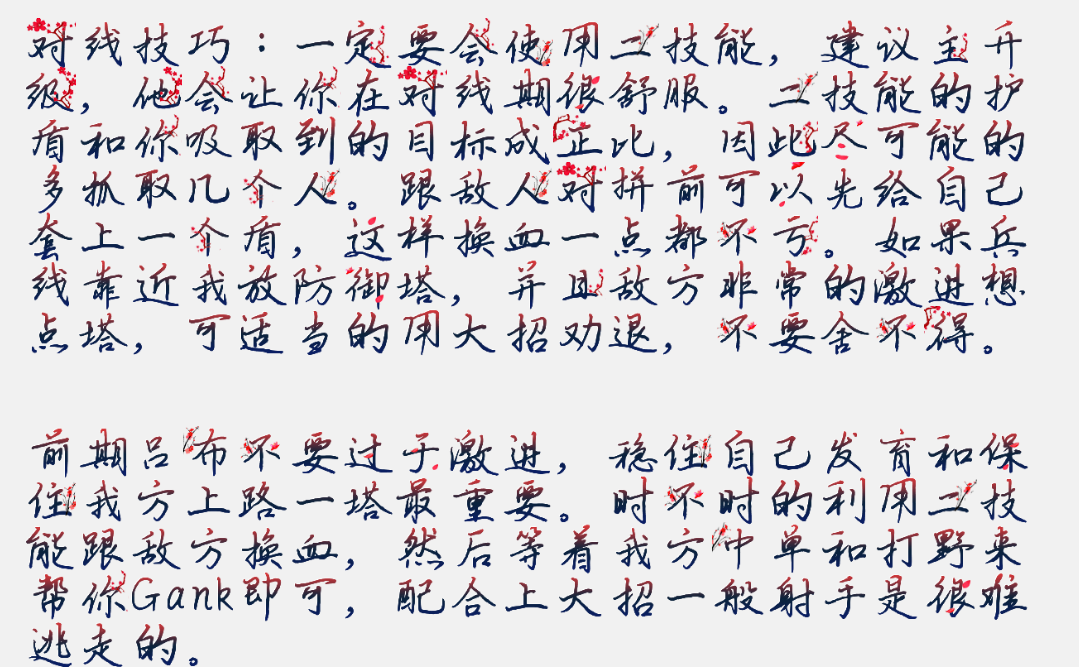 对线技巧：一定要会使用二技能，建议主升
级，他会让你在对线期很舒服。二技能的护
盾和你吸取到的目标成正比，因此尽可能的
多抓取几个人。跟敌人对拼前可以先给自己
套上一个盾，这样换血一点都不亏。如果兵
线靠近我放防御塔，并且敌方非常的激进想
点塔，可适当的用大招劝退，不要舍不得。
前期吕布不要过于激进，稳住自己发育和保
住我方上路一塔最重要。时不时的利用二技
能跟敌方换血，然后等着我方中单和打野来
帮你Gank即可，配合上大招一般射手是很难
逃走的。